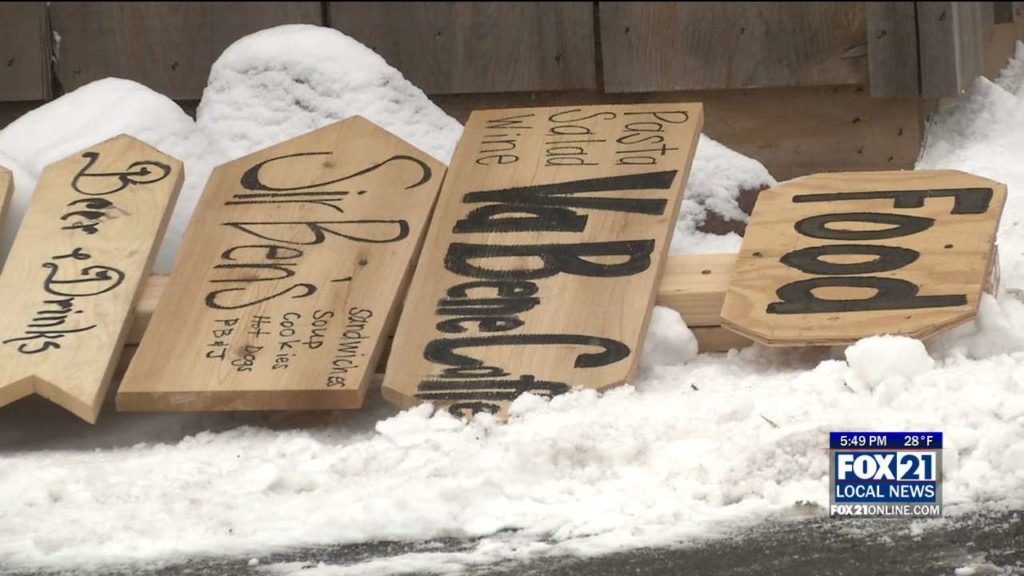 Beer & Drinks
Sir Ben's
Sandwiches
Soup
Cookies
Hot Dogs
PB&J
Pasta
Salad
Wine
Va Bene Caffe
Food
5:49 PM 28°F
FOX 21
LOCAL NEWS
FOX21ONLINE.COM